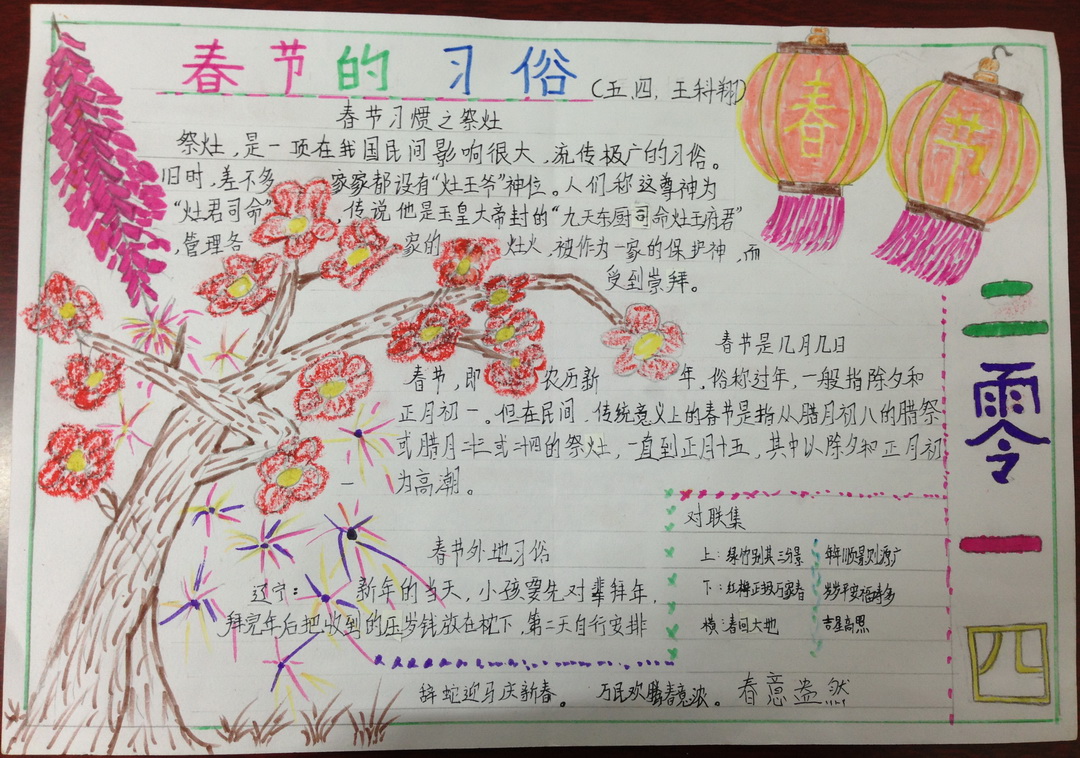 春节的习俗
(五、四，王科翔)
春节习惯之祭灶
祭灶，是一项在我国民间影响很大，流传极广的习俗。
旧时，差不多家家都设有“灶王爷”神位。人们称这尊神为
“灶君司命”，传说他是玉皇大帝封的“九天东厨司命灶王府君”
，管理各家的灶火，被作为一家的保护神，而
受到崇拜。
春节
春节是几月几日
春节，即农历新年，俗称过年，一般指除夕和
正月初一。但在民间，传统意义上的春节是指从腊月初八的腊祭
或腊月二十三或二十四的祭灶，一直到正月十五，其中以除夕和正月初
一为高潮。
春节外地习俗
辽宁：新年的当天，小孩要先对辈拜年，
拜完年后把收到的压岁钱放在枕下，第二天自行安排
对联集
上：绿竹别其三分景 年年顺景则源广
下：红梅正报万家春 岁岁平安福寿多
横：春回大地 吉星高照
辞蛇迎马庆新春。 万民欢腾春意浓。 春意盎然
二零一四